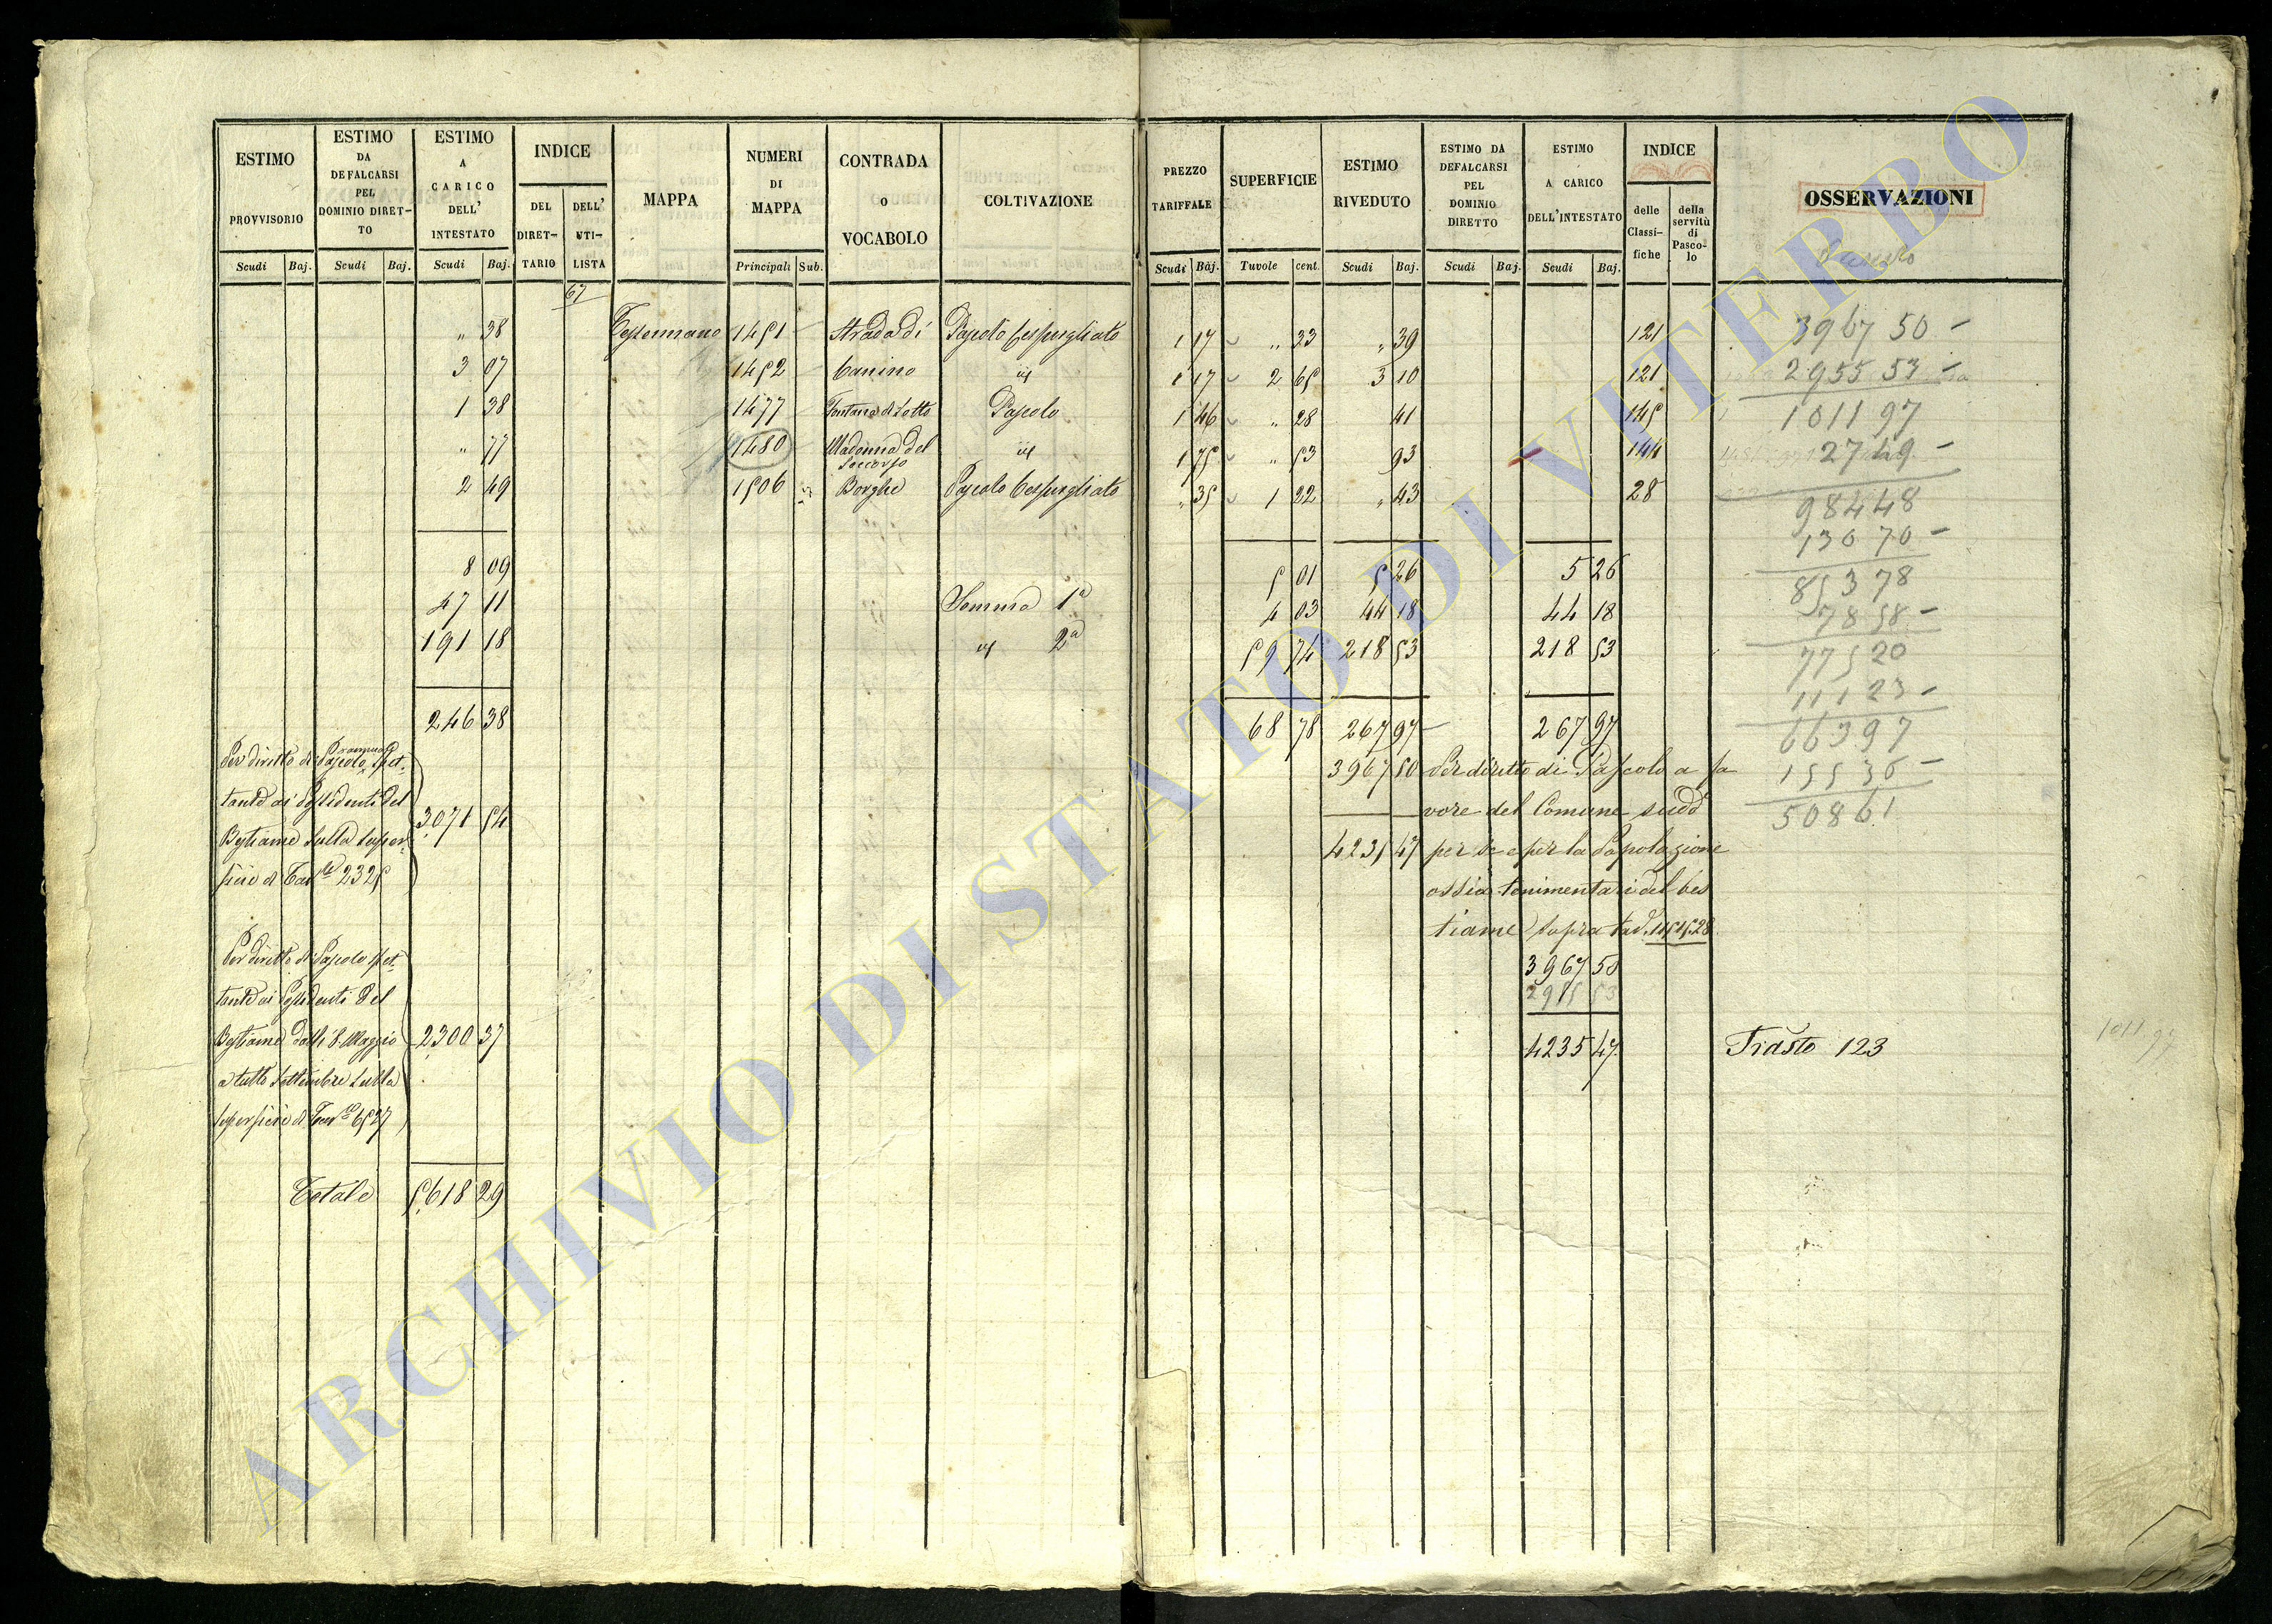 ESTIMO PROVVISORIO
ESTIMO DA DEFALCARSI PEL DOMINIO DIRET-TO
ESTIMO A CARICO DELL' INTESTATO
INDICE
DEL DIRET-TARIO
DELL' UTI-LISTA
MAPPA
NUMERI DI MAPPA
CONTRADA o VOCABOLO
COLTIVAZIONE
PREZZO TARIFFALE
SUPERFICIE
ESTIMO RIVEDUTO
ESTIMO DA DEFALCARSI PEL DOMINIO DIRETTO
ESTIMO A CARICO DELL'INTESTATO
INDICE
delle Classi-fiche
della servitù di Pasco-lo
OSSERVAZIONI
Scudi Baj. Scudi Baj. Scudi Baj. Principali Sub. Scudi Baj. Tavole cent. Scudi Baj. Scudi Baj. Scudi Baj.
67
„ 38 Tessennano 1451 Strada di Pascolo Cespugliato 1 17 „ 23 „ 39 121
3 07 1452 Canino id 1 17 2 65 3 10 121
1 38 1477 Fontana di Lotto Pascolo 1 46 „ 28 41 145
„ 77 1480 Madonna del Soccorso id 1 75 „ 53 93 144
2 49 1506 Borghe Pascolo Cespugliato „ 35 1 22 „ 43 28
8 09 5 01 5 26 5 26
47 11 Somma 1a 4 03 44 18 44 18
191 18 id 2a 59 74 218 53 218 53
246 38 68 78 267 97 267 97
Per diritto di Pascolo spet-
tante ai Possidenti del
Bestiame sulla super-
ficie di Tav.le 2325
3071 54
Per diritto di Pascolo spet-
tante ai Possidenti del
Bestiame dalli 8 Maggio
a tutto Settembre sulla
superficie di Tav.le 6527
2300 37
Totale 5618 29
3967 50 Per diritto di Pascolo a fa
vore del Comune sudd.
4235 47 per se e per la Popolazione
ossia tenimentari del bes
tiame sopra tav.
3967 50
2955 53
4235 47
Trasto 123
3967 50 -
2955 53 -
1011 97
27 49 -
984 48
130 70 -
853 78
78 58 -
775 20
111 23 -
663 97
155 36 -
508 61
1011 97
ARCHIVIO DI STATO DI VITERBO